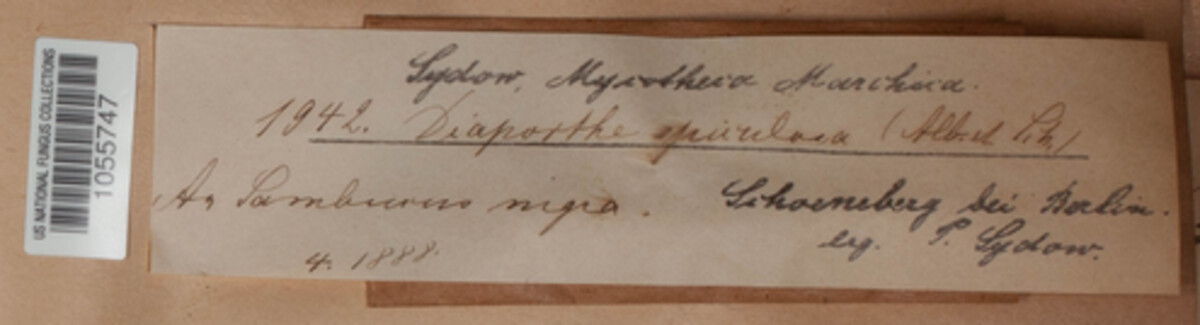 US NATIONAL FUNGUS COLLECTIONS
1055747
Sydow, Mycotheca Marchica.
1942. Diaporthe spiculosa (Alb. et Sch.)
An Sambucus nigra.
Schoeneberg bei Berlin.
4. 1888.
leg. P. Sydow.